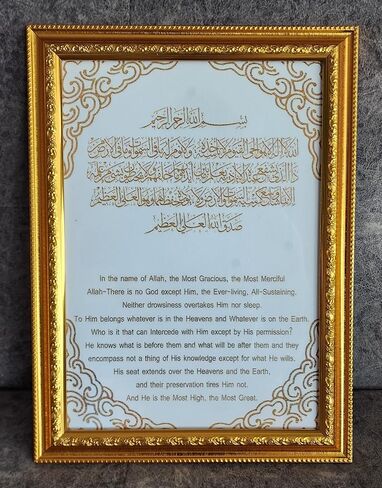 بسم الله الرحمن الرحيم
الله لا إله إلا هو الحي القيوم لا تأخذه سنة ولا نوم له ما في السموات وما في الأرض
من ذا الذي يشفع عنده إلا بإذنه يعلم ما بين أيديهم وما خلفهم ولا يحيطون بشيء من علمه
إلا بما شاء وسع كرسيه السموات والأرض ولا يؤده حفظهما وهو العلي العظيم
صدق الله العلي العظيم
In the name of Allah, the Most Gracious, the Most Merciful
Allah-There is no God except Him, the Ever-living, All-Sustaining.
Neither drowsiness overtakes Him nor sleep.
To Him belongs whatever is in the Heavens and Whatever is on the Earth.
Who is it that can Intercede with Him except by His permission?
He knows what is before them and what will be after them and they
encompass not a thing of His knowledge except for what He wills.
His seat extends over the Heavens and the Earth,
and their preservation tires Him not.
And He is the Most High, the Most Great.